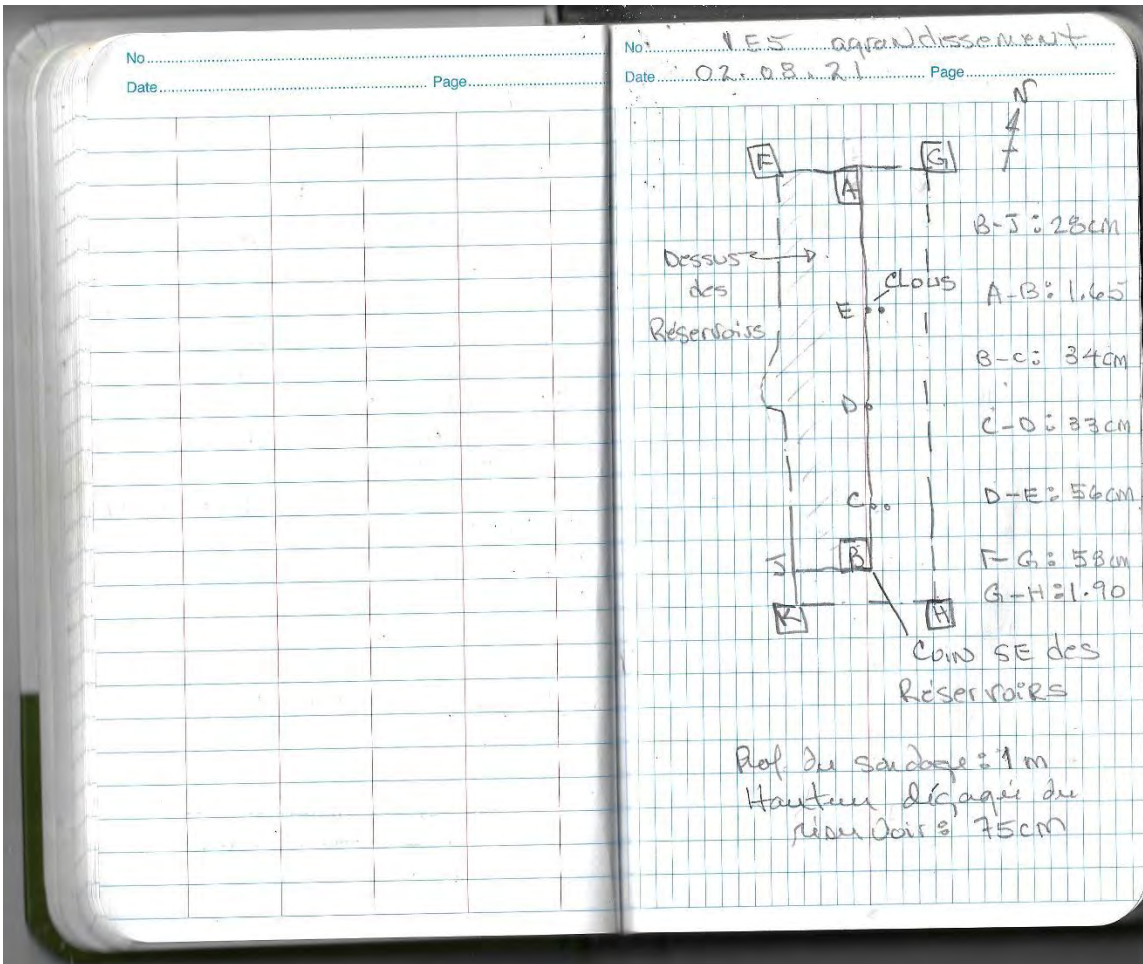 No.
Date Page
No. 1E5 agrandissement
Date 02.08.21 Page
N
F
G
A
B-J: 28cm
Dessus
des
Réservoirs
clous
E
A-B: 1.65
B-C: 34cm
D
C-D: 33cm
C
D-E: 56cm
B
J
F-G: 58cm
G-H: 1.90
K
H
Coin SE des
Réservoirs
Prof du sondage: 1m
Hauteur dégagée du
réservoir: 75cm